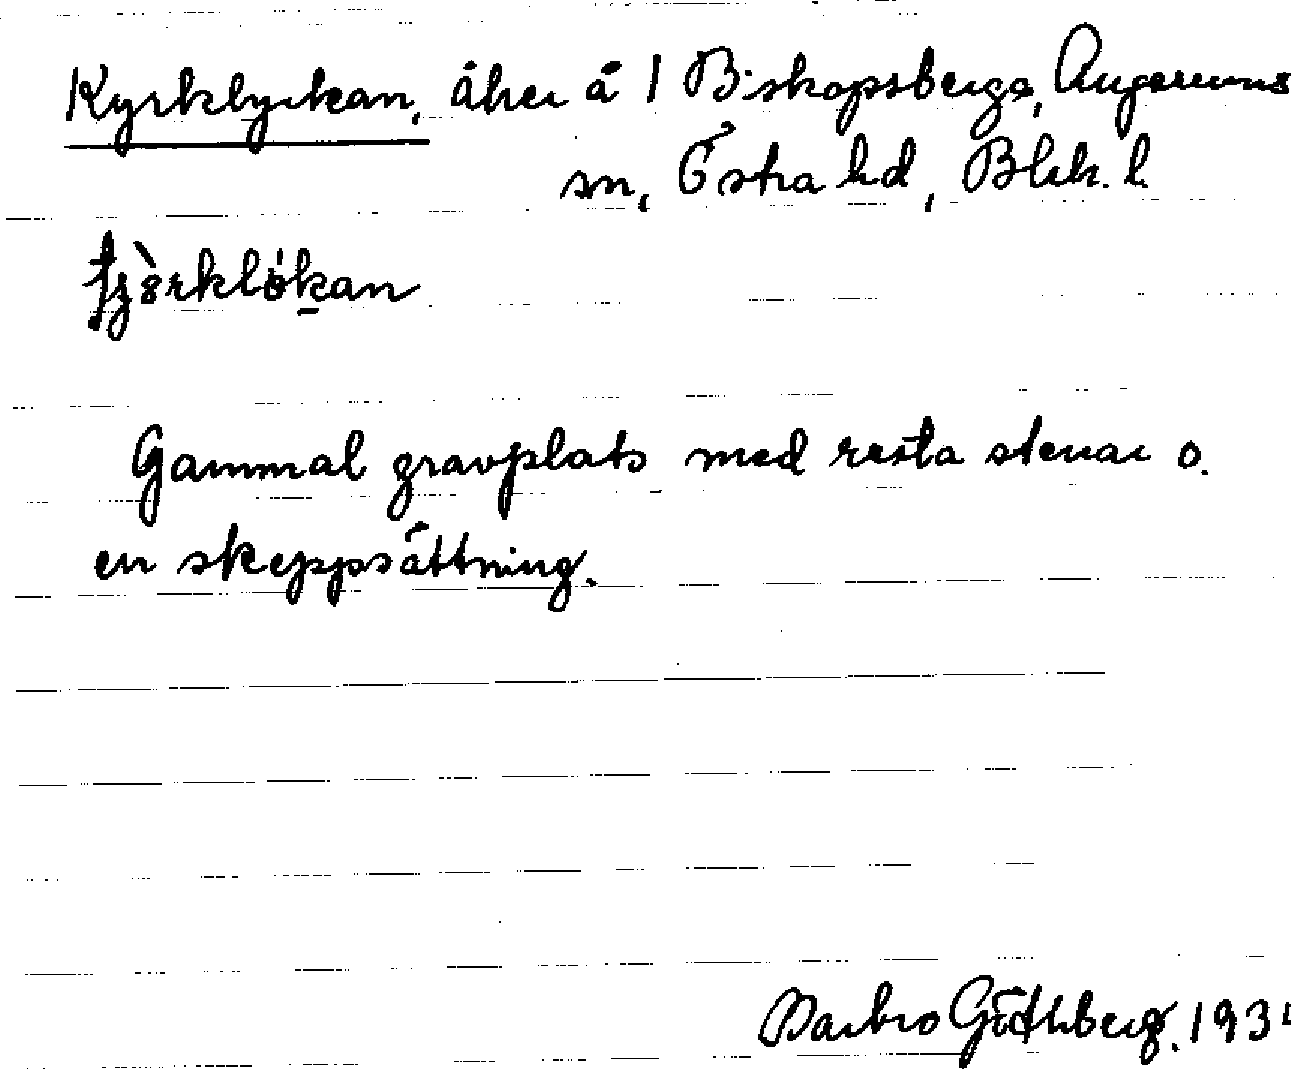 Kyrklyckan, åker å 1 Biskopsberga, Augerums
sn, Östra hd, Blek. l.
Gammal gravplats med resta stenar o.
en skeppsättning.
Barbro Göthberg. 193